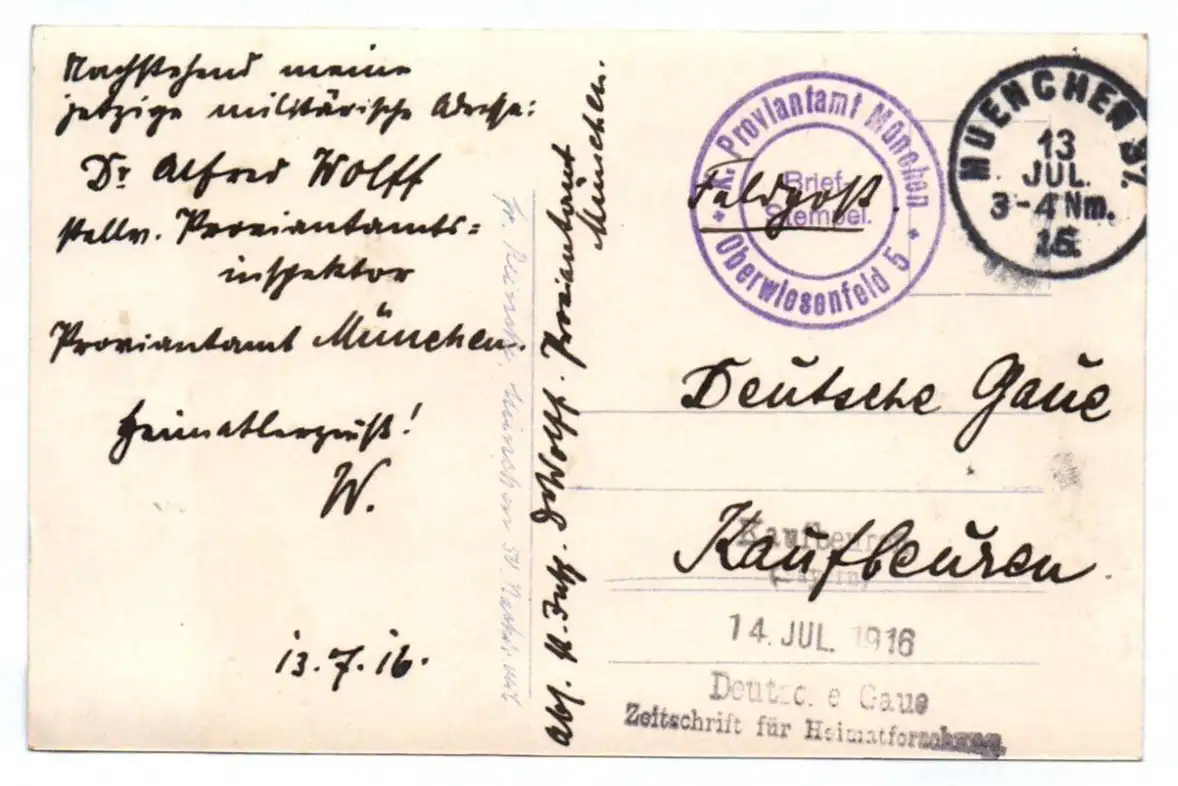 Nachstehend meine
jetzige militärische Adresse:
Dr Alfred Wolff
stellv. Proviantamts=
inspektor
Proviantamt München.
Heimatlergruß!
W.
13.7.16.
Abs. Dr Wolff. Proviantamt
München.
K. Proviantamt München
* Oberwiesenfeld 5 *
Brief
Stempel.
Feldpost.
MUENCHEN 37.
13
JUL.
3-4 Nm.
16.
Deutsche Gaue
Kaufbeuren.
Kaufbeuren
(Bayern)
14. JUL. 1916
Deutsche Gaue
Zeitschrift für Heimatforschung.